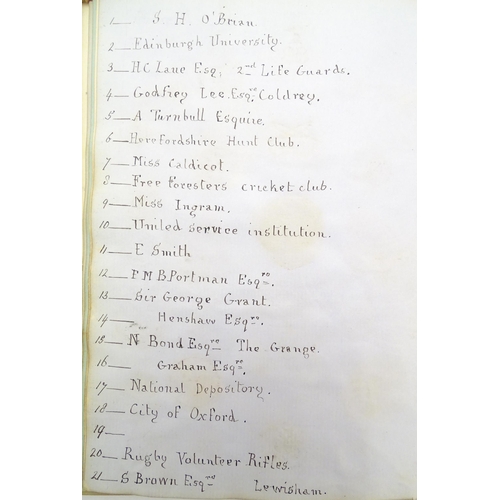 1— S. H. O'Brian.
2— Edinburgh University.
3— H C Laue Esq, 2nd Life Guards.
4— Godfrey Lee. Esqre, Coldrey.
5— A Turnbull Esquire.
6— Herefordshire Hunt Club.
7— Miss Caldicot.
8— Free Foresters cricket club.
9— Miss Ingram.
10— United service institution.
11— E Smith
12— F M B Portman Esqre.
13— Sir George Grant.
14— Henshaw Esqre.
15— N Bond Esqre The Grange.
16— Graham Esqre.
17— National Depository.
18— City of Oxford.
19—
20— Rugby Volunteer Rifles.
21— S Brown Esqre Lewisham.